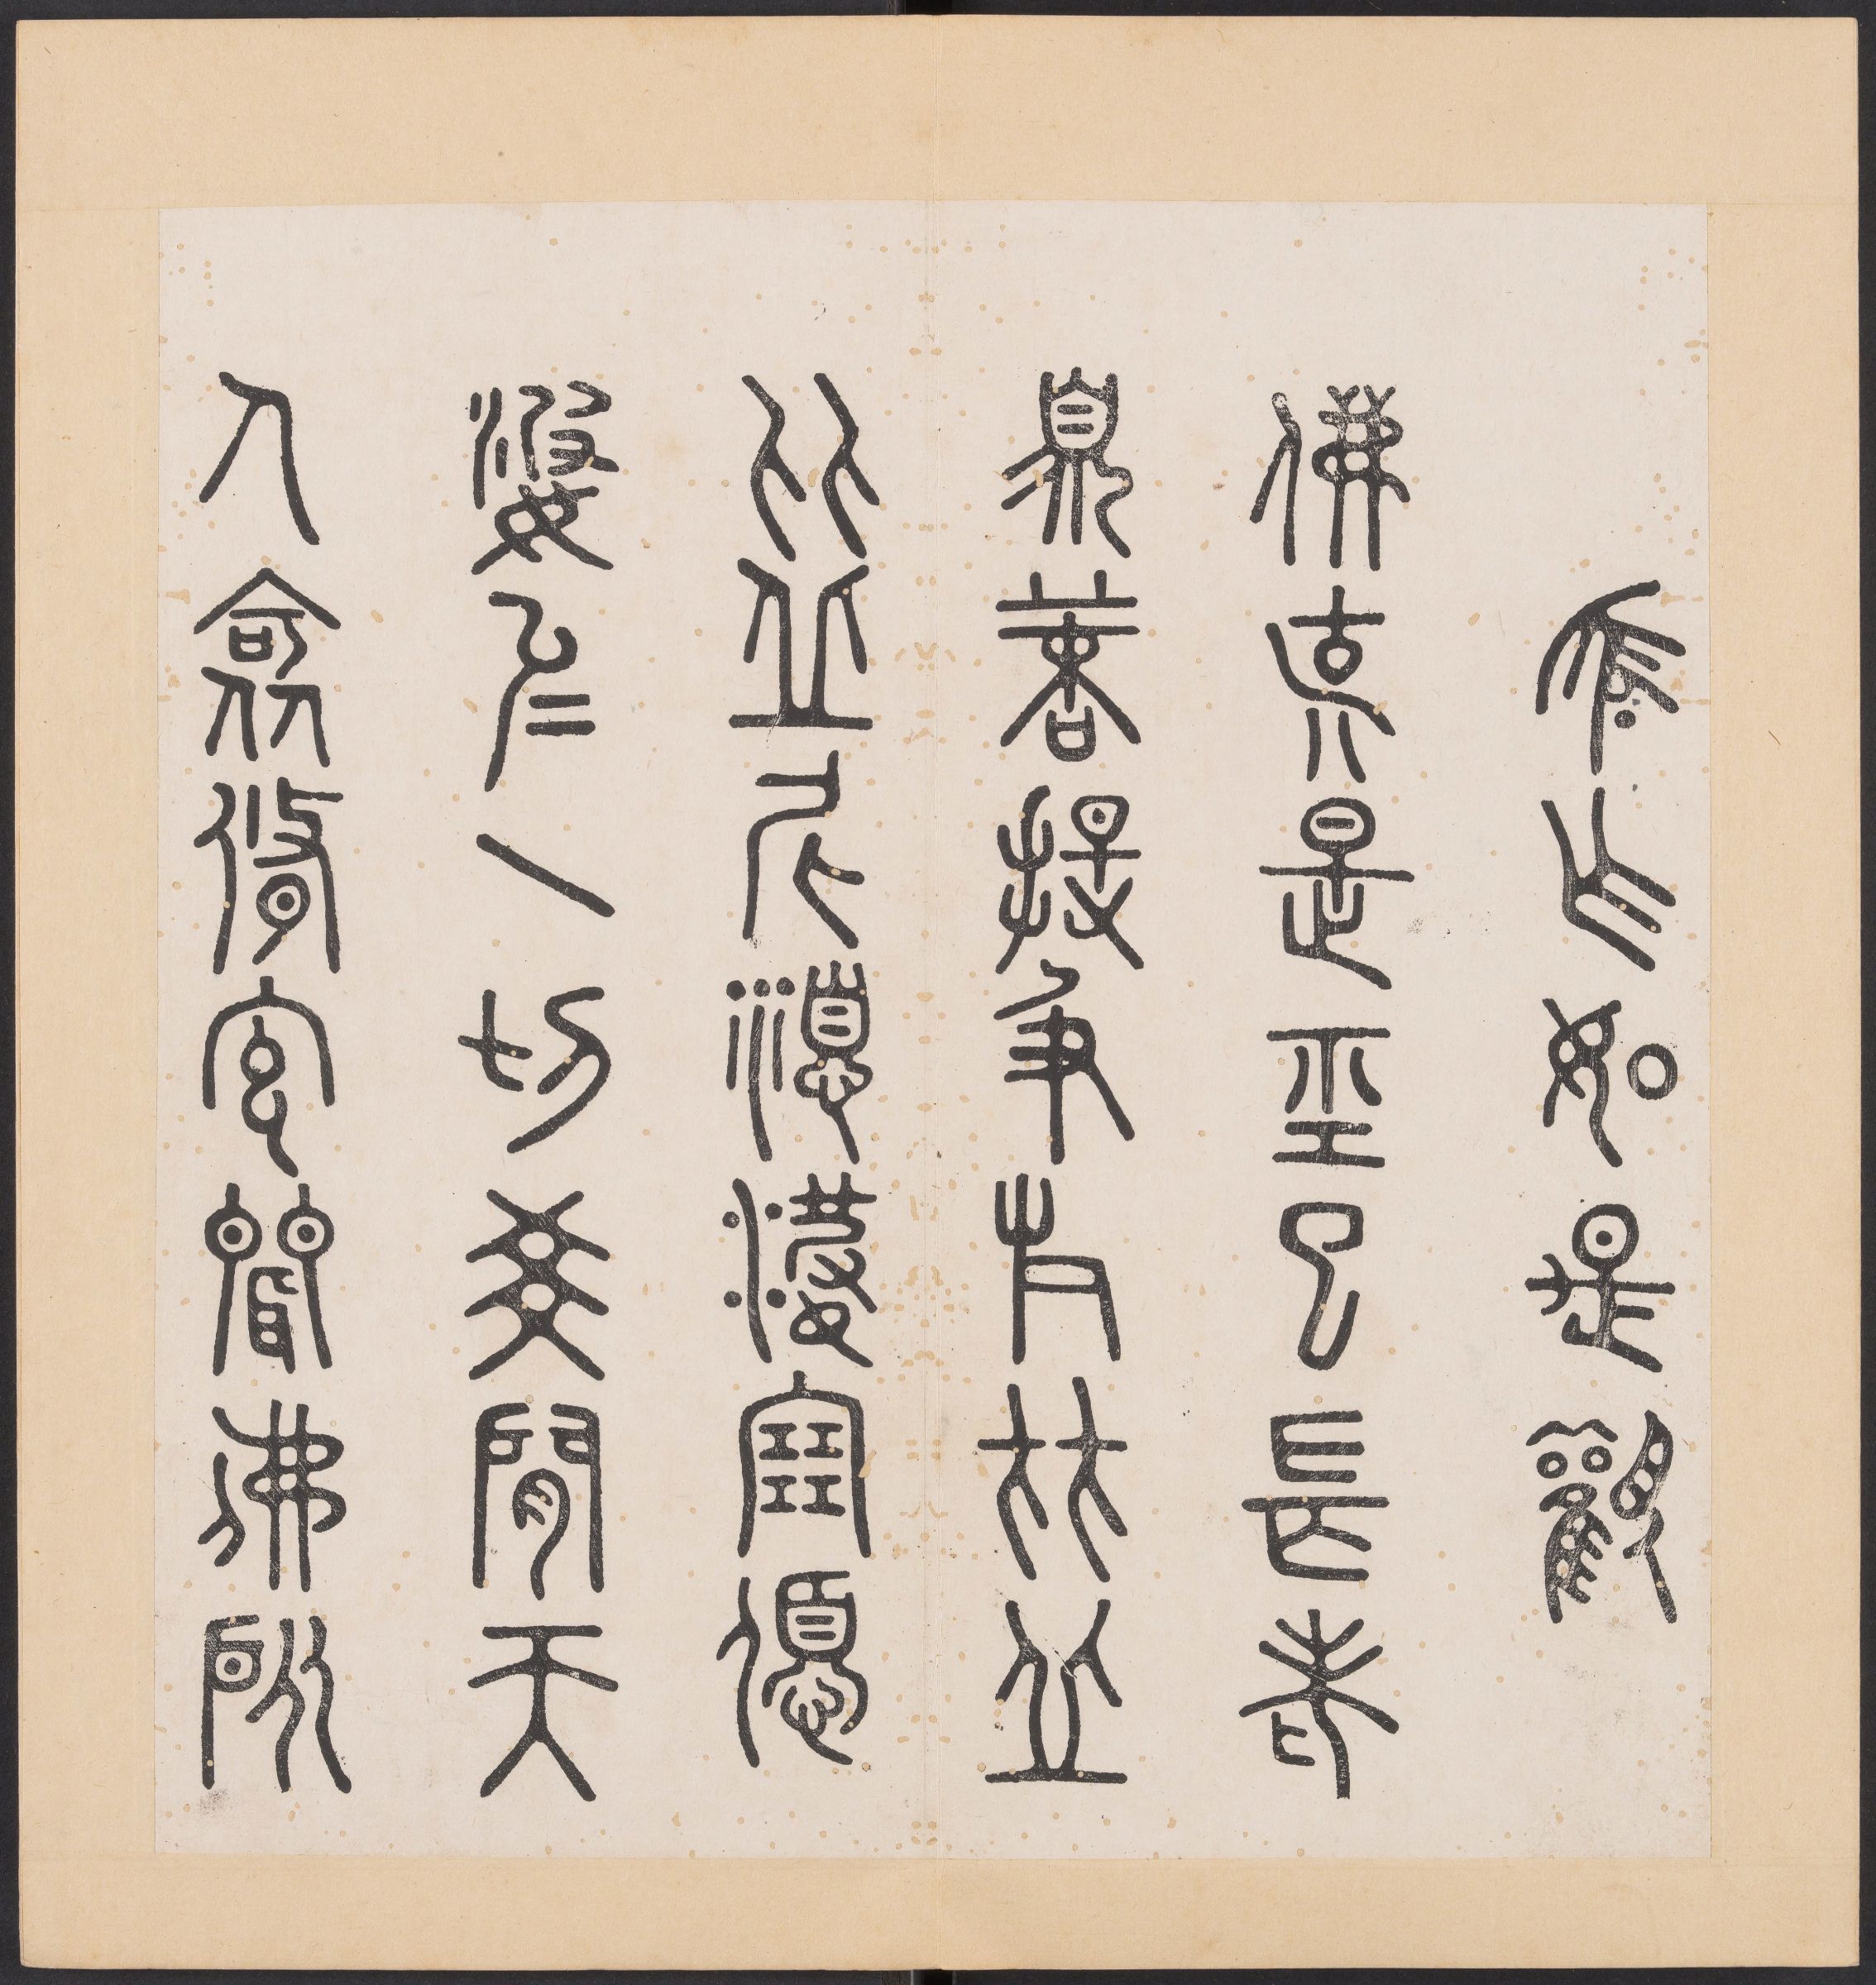 應作如是觀
佛說是經已長老
須菩提及諸比丘
比丘尼優婆塞優
婆夷一切世間天
人阿修羅聞佛所